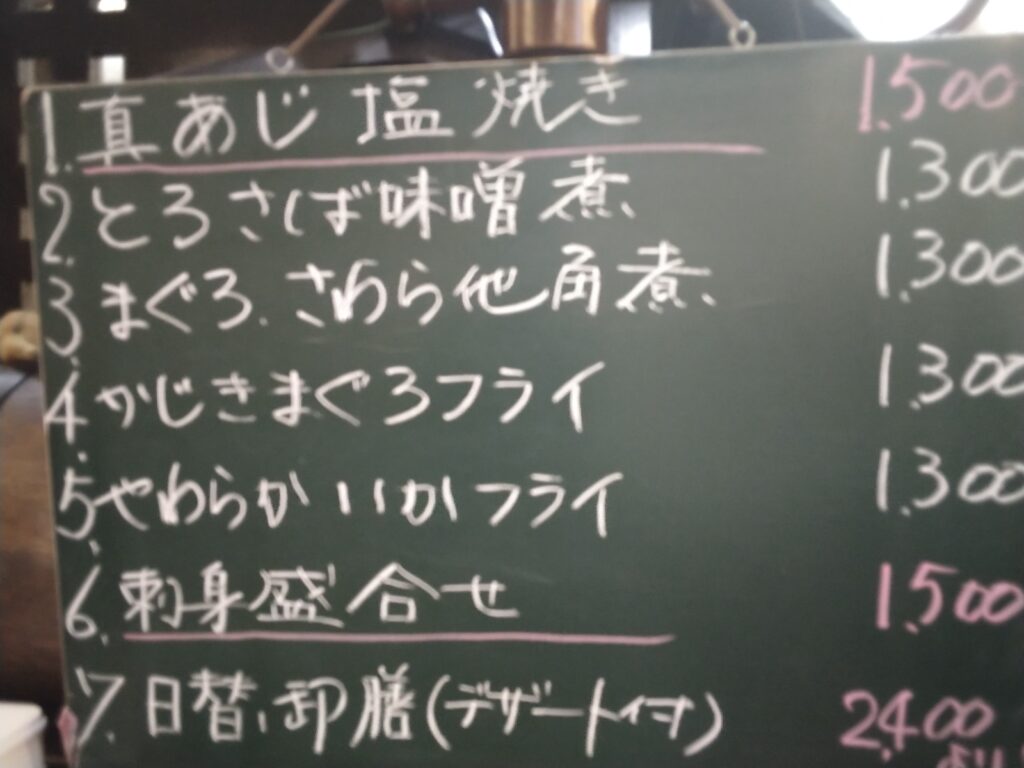 1. 真あじ 塩焼き 1.500
2. とろさば味噌煮 1.300
3. まぐろ. さわら他角煮 1.300
4. かじきまぐろフライ 1.300
5. やわらかいかフライ 1.300
6. 刺身盛合せ 1.500
7. 日替り御膳(デザート付) 2.400
より